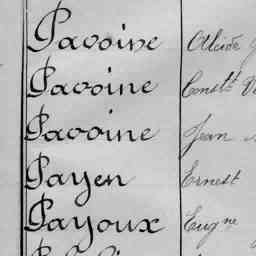 Pavoine Alcide
Pavoine Const.t
Pavoine Jean
Payen Ernest
Payoux Eug.ne